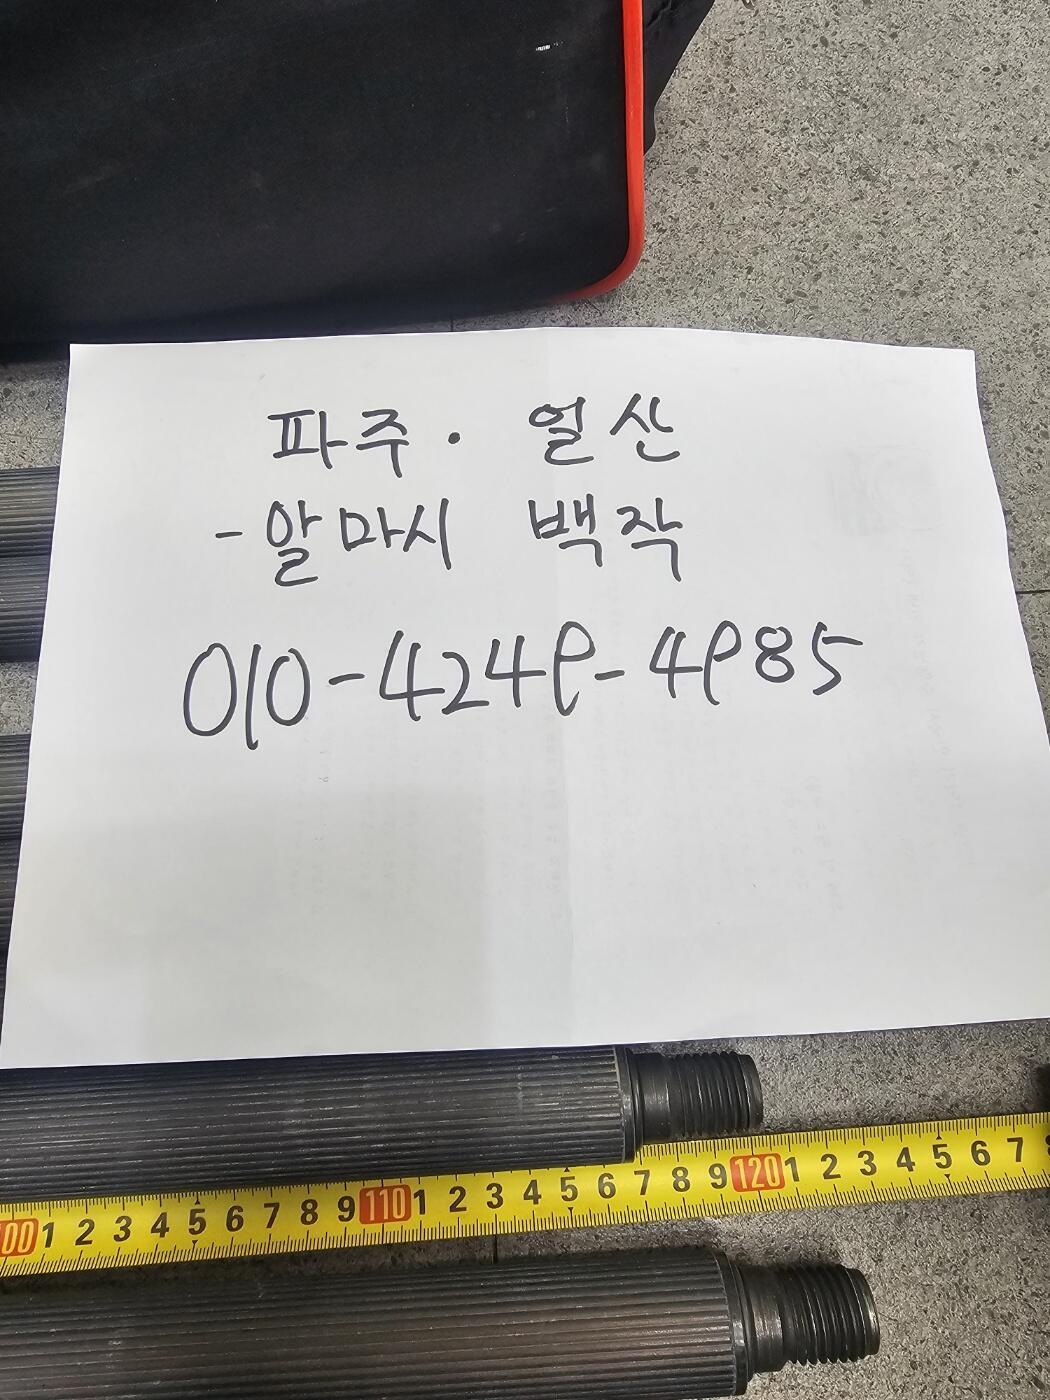 파주. 일산
- 알마시 백작
010-4249-4985
100 1 2 3 4 5 6 7 8 9 110 1 2 3 4 5 6 7 8 9 120 1 2 3 4 5 6 7